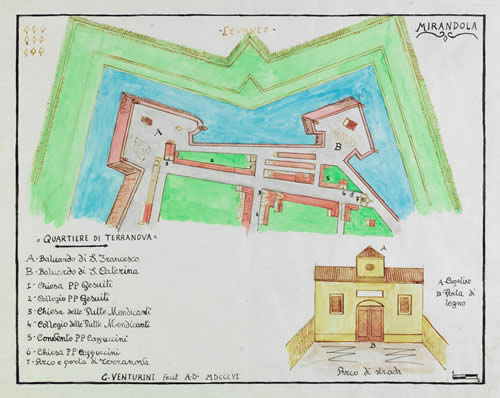 MIRANDOLA
- LEVANTE -
A
B
= QUARTIERE DI TERRANOVA =
A - Baluardo di S. Francesco
B - Baluardo di S. Caterina
1 - Chiesa PP Gesuiti
2 - Collegio PP Gesuiti
3 - Chiesa delle Putte Mendicanti
4 - Collegio delle Putte Mendicanti
5 - Convento PP Cappuccini
6 - Chiesa PP Cappuccini
7 - Arco e porta di Terranova
G. VENTURINI fecit A.D. MDCCCVI
A
B
Arco di strada
A - Cupolino
B - Porta di
legno